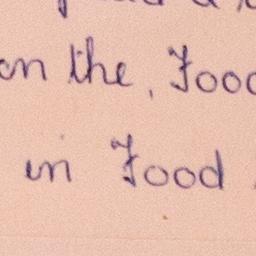 on the, Food
in Food